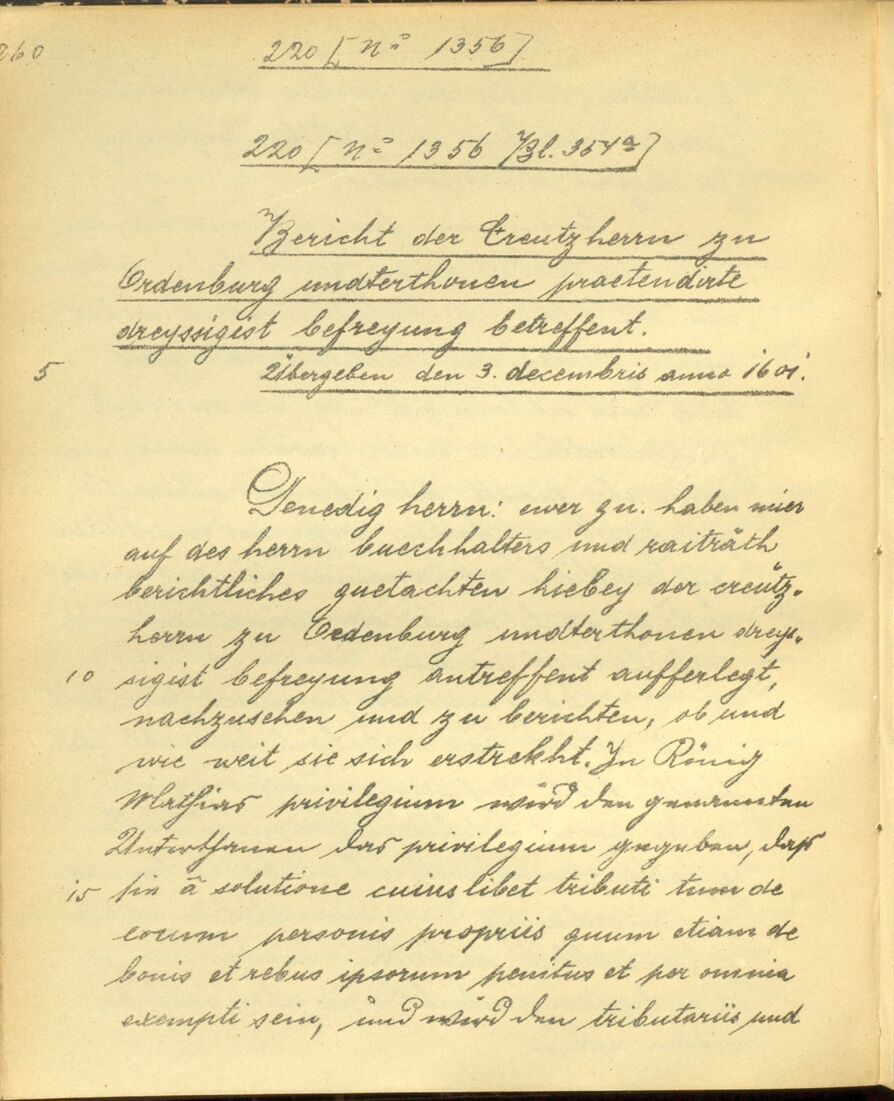 260
220 [Nº 1356]
220 [Nº 1356 Bl. 354a]
Bericht der Creutzherrn zu
Ordenburg undterthonen praetendirte
dreyssigist befreyung betreffent.
5 Übergeben den 3. decembris anno 1601.
Genedig herrn: ewer gn. haben mier
auf des herrn buechhalters und raiträth
berichtliches guetachten hiebey der creütz-
herrn zu Oedenburg undterthonen dreys-
10 sigist befreyung antreffent aufferlegt,
nachzusehen und zu berichten, ob und
wie weit sie sich erstrekht. In König
Mathias privilegium wird den genannten
Unterthanen das privilegium gegeben, daß
15 sie â solutione cuiuslibet tributi tum de
eorum personis propriis quum etiam de
bonis et rebus ipsorum penitus et per omnia
exempti sein, und wird den tributariis und